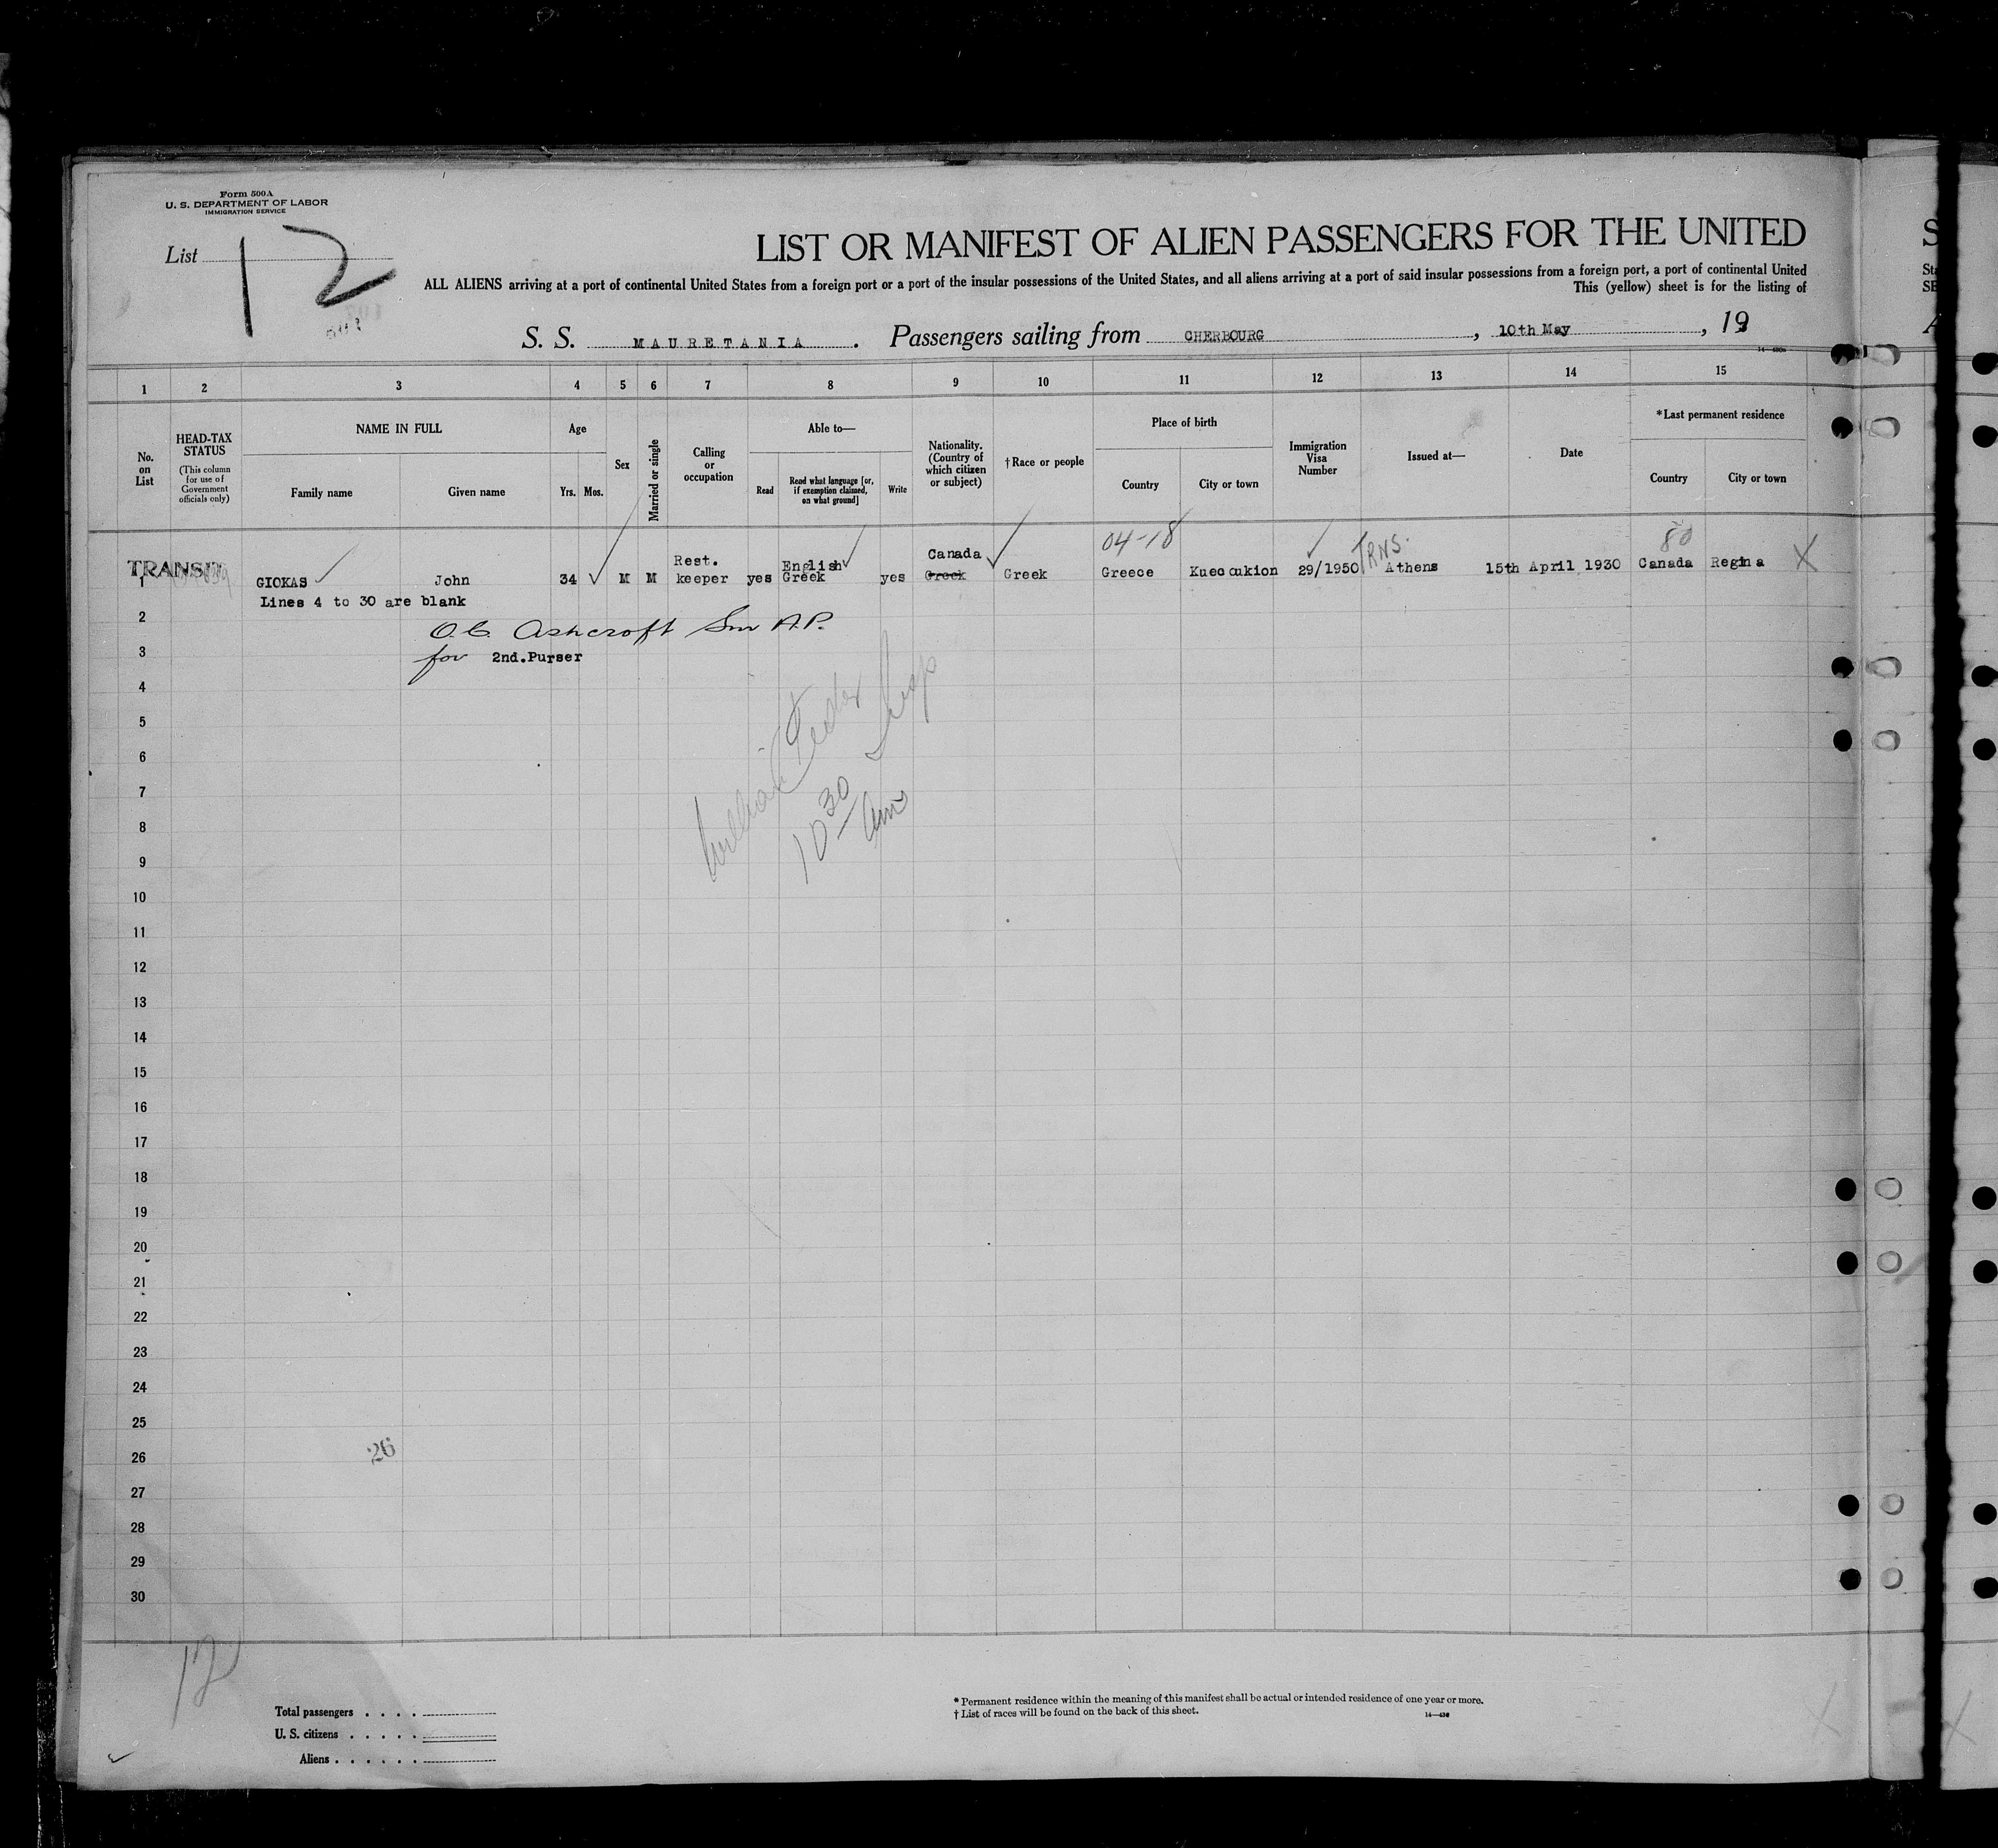 Form 500A
U. S. DEPARTMENT OF LABOR
IMMIGRATION SERVICE
List 12
LIST OR MANIFEST OF ALIEN PASSENGERS FOR THE UNITED
ALL ALIENS arriving at a port of continental United States from a foreign port or a port of the insular possessions of the United States, and all aliens arriving at a port of said insular possessions from a foreign port, a port of continental United
This (yellow) sheet is for the listing of
S. S. MAURETANIA. Passengers sailing from CHERBOURG, 10th May, 19
1 2 3 4 5 6 7 8 9 10 11 12 13 14 15
No. on List
HEAD-TAX STATUS (This column for use of Government officials only)
NAME IN FULL
Family name
Given name
Age
Yrs. Mos.
Sex
Married or single
Calling or occupation
Able to—
Read
Read what language [or, if exemption claimed, on what ground]
Write
Nationality. (Country of which citizen or subject)
†Race or people
Place of birth
Country
City or town
Immigration Visa Number
Issued at—
Date
*Last permanent residence
Country
City or town
04-18 TRNS. 80
TRANSIT
1 GIOKAS John 34 M M Rest. keeper yes English Greek yes Canada Greek Greek Greece 29/1950 Athens 15th April 1930 Canada Regina X
Lines 4 to 30 are blank
2
O.C. Ashcroft A.P.
3
for 2nd.Purser
4
5
6
7
8
10 30 am
9
10
11
12
13
14
15
16
17
18
19
20
21
22
23
24
25
26 26
27
28
29
30
12
Total passengers . . . .
U. S. citizens . . . . .
Aliens . . . . . .
* Permanent residence within the meaning of this manifest shall be actual or intended residence of one year or more.
† List of races will be found on the back of this sheet.